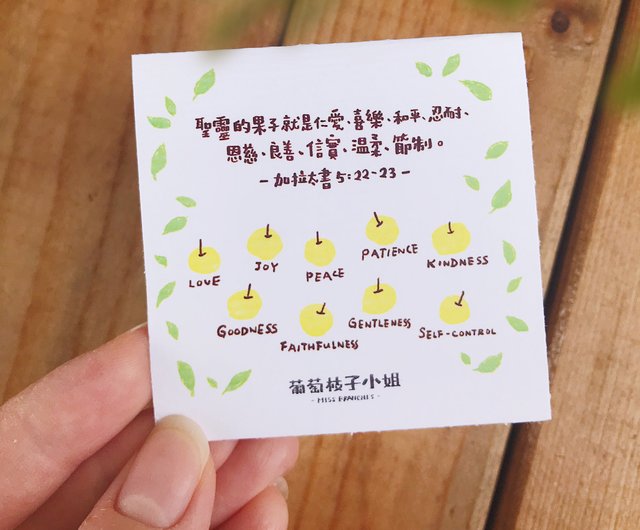 聖靈的果子就是仁愛、喜樂、和平、忍耐、
恩慈、良善、信實、溫柔、節制。
- 加拉太書 5:22-23 -
LOVE
JOY
PEACE
PATIENCE
KINDNESS
GOODNESS
FAITHFULNESS
GENTLENESS
SELF-CONTROL
葡萄枝子小姐
- MISS BRANCHES -